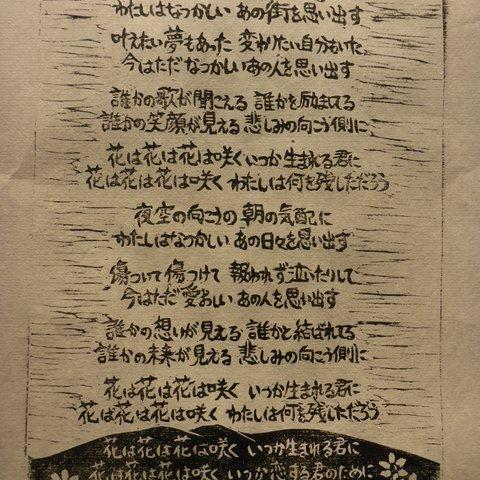 わたしはなつかしい あの街を思い出す
叶えたい夢もあった 変わりたい自分もいた
今はただなつかしい あの人を思い出す
誰かの歌が聞こえる 誰かを励ましてる
誰かの笑顔が見える 悲しみの向こう側に
花は花は花は咲く いつか生まれる君に
花は花は花は咲く わたしは何を残しただろう
夜空の向こうの 朝の気配に
わたしはなつかしい あの日々を思い出す
傷ついて傷つけて 報われず泣いたりして
今はただ愛おしい あの人を思い出す
誰かの想いが見える 誰かと結ばれてる
誰かの未来が見える 悲しみの向こう側に
花は花は花は咲く いつか生まれる君に
花は花は花は咲く わたしは何を残しただろう
花は花は花は咲く いつか生まれる君に
花は花は花は咲く いつか恋する君のために